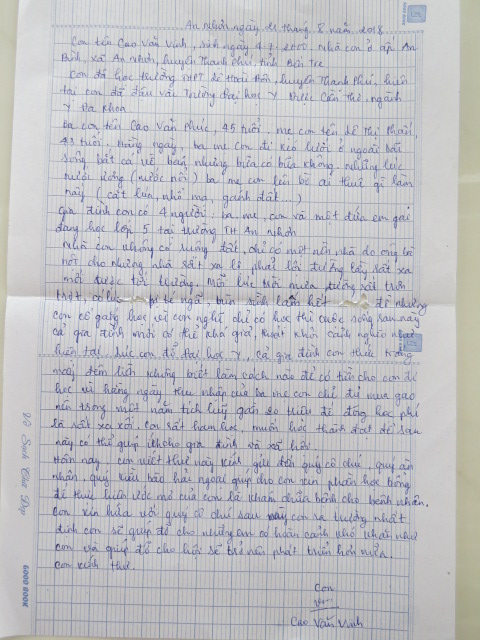 An Nhơn ngày 21 tháng 8 năm 2018
Con tên Cao Văn Vinh, sinh ngày 4.7.2000, nhà con ở ấp An
Bình, xã An Nhơn, huyện Thạnh Phú, tỉnh Bến Tre
Con đã học trường THPT Lê Hoài Đôn, huyện Thạnh Phú, hiện
tại con đã đậu vào Trường Đại học Y Dược Cần Thơ, ngành
Y Đa Khoa.
Ba con tên Cao Văn Phúc, 45 tuổi, mẹ con tên Lê Thị Phấn,
43 tuổi. Hàng ngày, ba mẹ con đi kéo lưới ở ngoài bãi
sông bắt cá về bán, nhưng bữa có bữa không. những lúc
nước ương (nước nổi) ba mẹ con lên bờ ai thuê gì làm
nấy (cắt lúa, nhổ mạ, gánh đất...)
Gia đình con có 4 người: ba mẹ, con và một đứa em gái
đang học lớp 5 tại trường TH An Nhơn
Nhà con không có ruộng đất, chỉ có một nền nhà do ông bà
nội cho nhưng nhà rất xa lộ phải lội đường lầy rất xa
mới được tới trường, mỗi lúc trời mưa đường rất trơn
trợt, có lúc té ngã, bùn sình lấm hết để nhưng
con cố gắng học vì con nghĩ chỉ có học thì cuộc sống sau này
cả gia đình mới có thể khá giả, thoát khỏi cảnh nghèo như
hiện tại. Lúc con đỗ đại học Y, cả gia đình con thức trắng
mấy đêm liền không biết làm cách nào để có tiền cho con đi
học vì hàng ngày thu nhập của ba mẹ con chỉ đủ mua gạo
nên trong một năm tích lũy gần 20 triệu để đóng học phí
là rất xa xôi. Con rất ham học, muốn học thành đạt để sau
này có thể giúp ích cho gia đình và xã hội.
Hôm nay con viết thư này kính gửi đến quý cô chú, quý ân
nhân, quý kiều bào hải ngoại giúp cho con xin phần học bổng
để thực hiện ước mơ của con là khám chữa bệnh cho bệnh nhân.
Con xin hứa với quý cô chú sau này con ra trường nhất
định con sẽ giúp đỡ cho những em có hoàn cảnh khó khăn như
con và giúp đỡ cho hội sẽ trở nên phát triển hơn nữa.
Con kính thư.
Con
Cao Văn Vinh
Vở Sạch Chữ Đẹp
GOOD BOOK